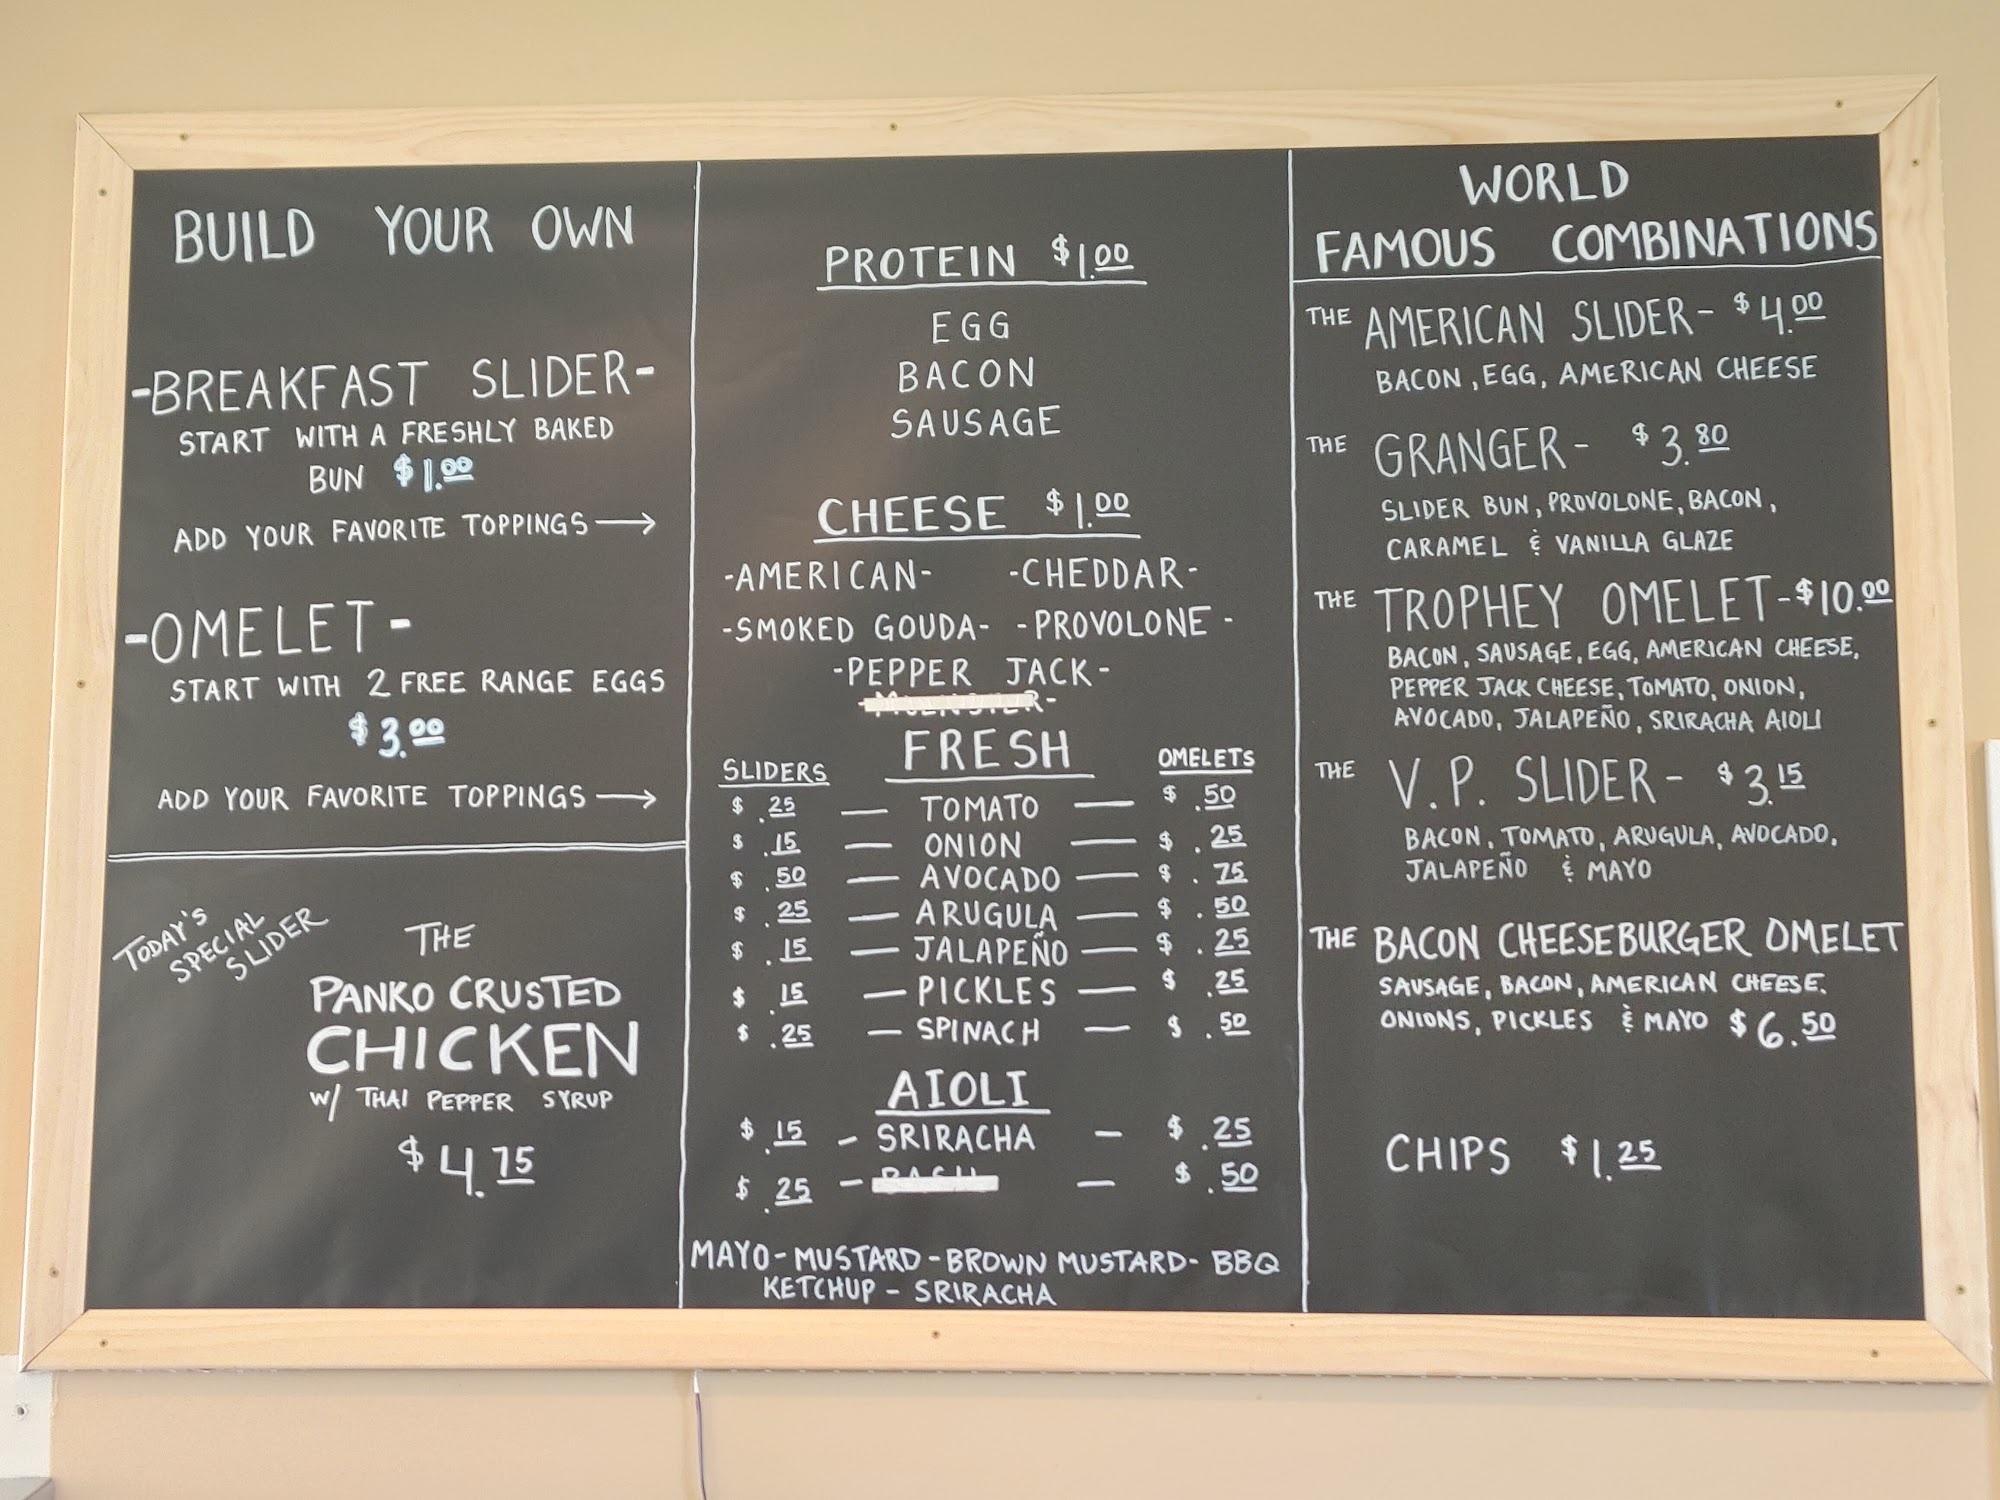 BUILD YOUR OWN
-BREAKFAST SLIDER-
START WITH A FRESHLY BAKED
BUN $1.00
ADD YOUR FAVORITE TOPPINGS →
-OMELET-
START WITH 2 FREE RANGE EGGS
$3.00
ADD YOUR FAVORITE TOPPINGS →
TODAY'S
SPECIAL
SLIDER
THE
PANKO CRUSTED
CHICKEN
W/ THAI PEPPER SYRUP
$4.75
PROTEIN $1.00
EGG
BACON
SAUSAGE
CHEESE $1.00
-AMERICAN- -CHEDDAR-
-SMOKED GOUDA- -PROVOLONE-
-PEPPER JACK-
FRESH
SLIDERS OMELETS
$.25 — TOMATO — $.50
$.15 — ONION — $.25
$.50 — AVOCADO — $.75
$.25 — ARUGULA — $.50
$.15 — JALAPEÑO — $.25
$.15 — PICKLES — $.25
$.25 — SPINACH — $.50
AIOLI
$.15 - SRIRACHA - $.25
$.25 - - $.50
MAYO - MUSTARD - BROWN MUSTARD - BBQ
KETCHUP - SRIRACHA
WORLD
FAMOUS COMBINATIONS
THE AMERICAN SLIDER - $4.00
BACON, EGG, AMERICAN CHEESE
THE GRANGER - $3.80
SLIDER BUN, PROVOLONE, BACON,
CARAMEL & VANILLA GLAZE
THE TROPHEY OMELET - $10.00
BACON, SAUSAGE, EGG, AMERICAN CHEESE,
PEPPER JACK CHEESE, TOMATO, ONION,
AVOCADO, JALAPEÑO, SRIRACHA AIOLI
THE V.P. SLIDER - $3.15
BACON, TOMATO, ARUGULA, AVOCADO,
JALAPEÑO & MAYO
THE BACON CHEESEBURGER OMELET
SAUSAGE, BACON, AMERICAN CHEESE.
ONIONS, PICKLES & MAYO $6.50
CHIPS $1.25